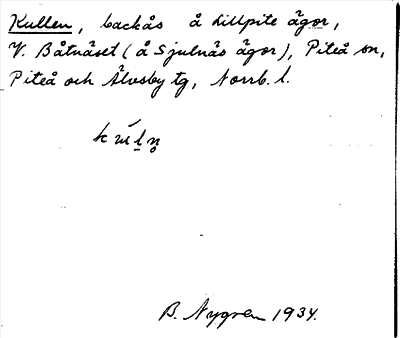 Kullen, backås å Lillpite ägor,
V. Båtnäset (å Sjulnäs ägor), Piteå sn,
Piteå och Älvsby tg, Norrb. l.
B. Nygren 1934.